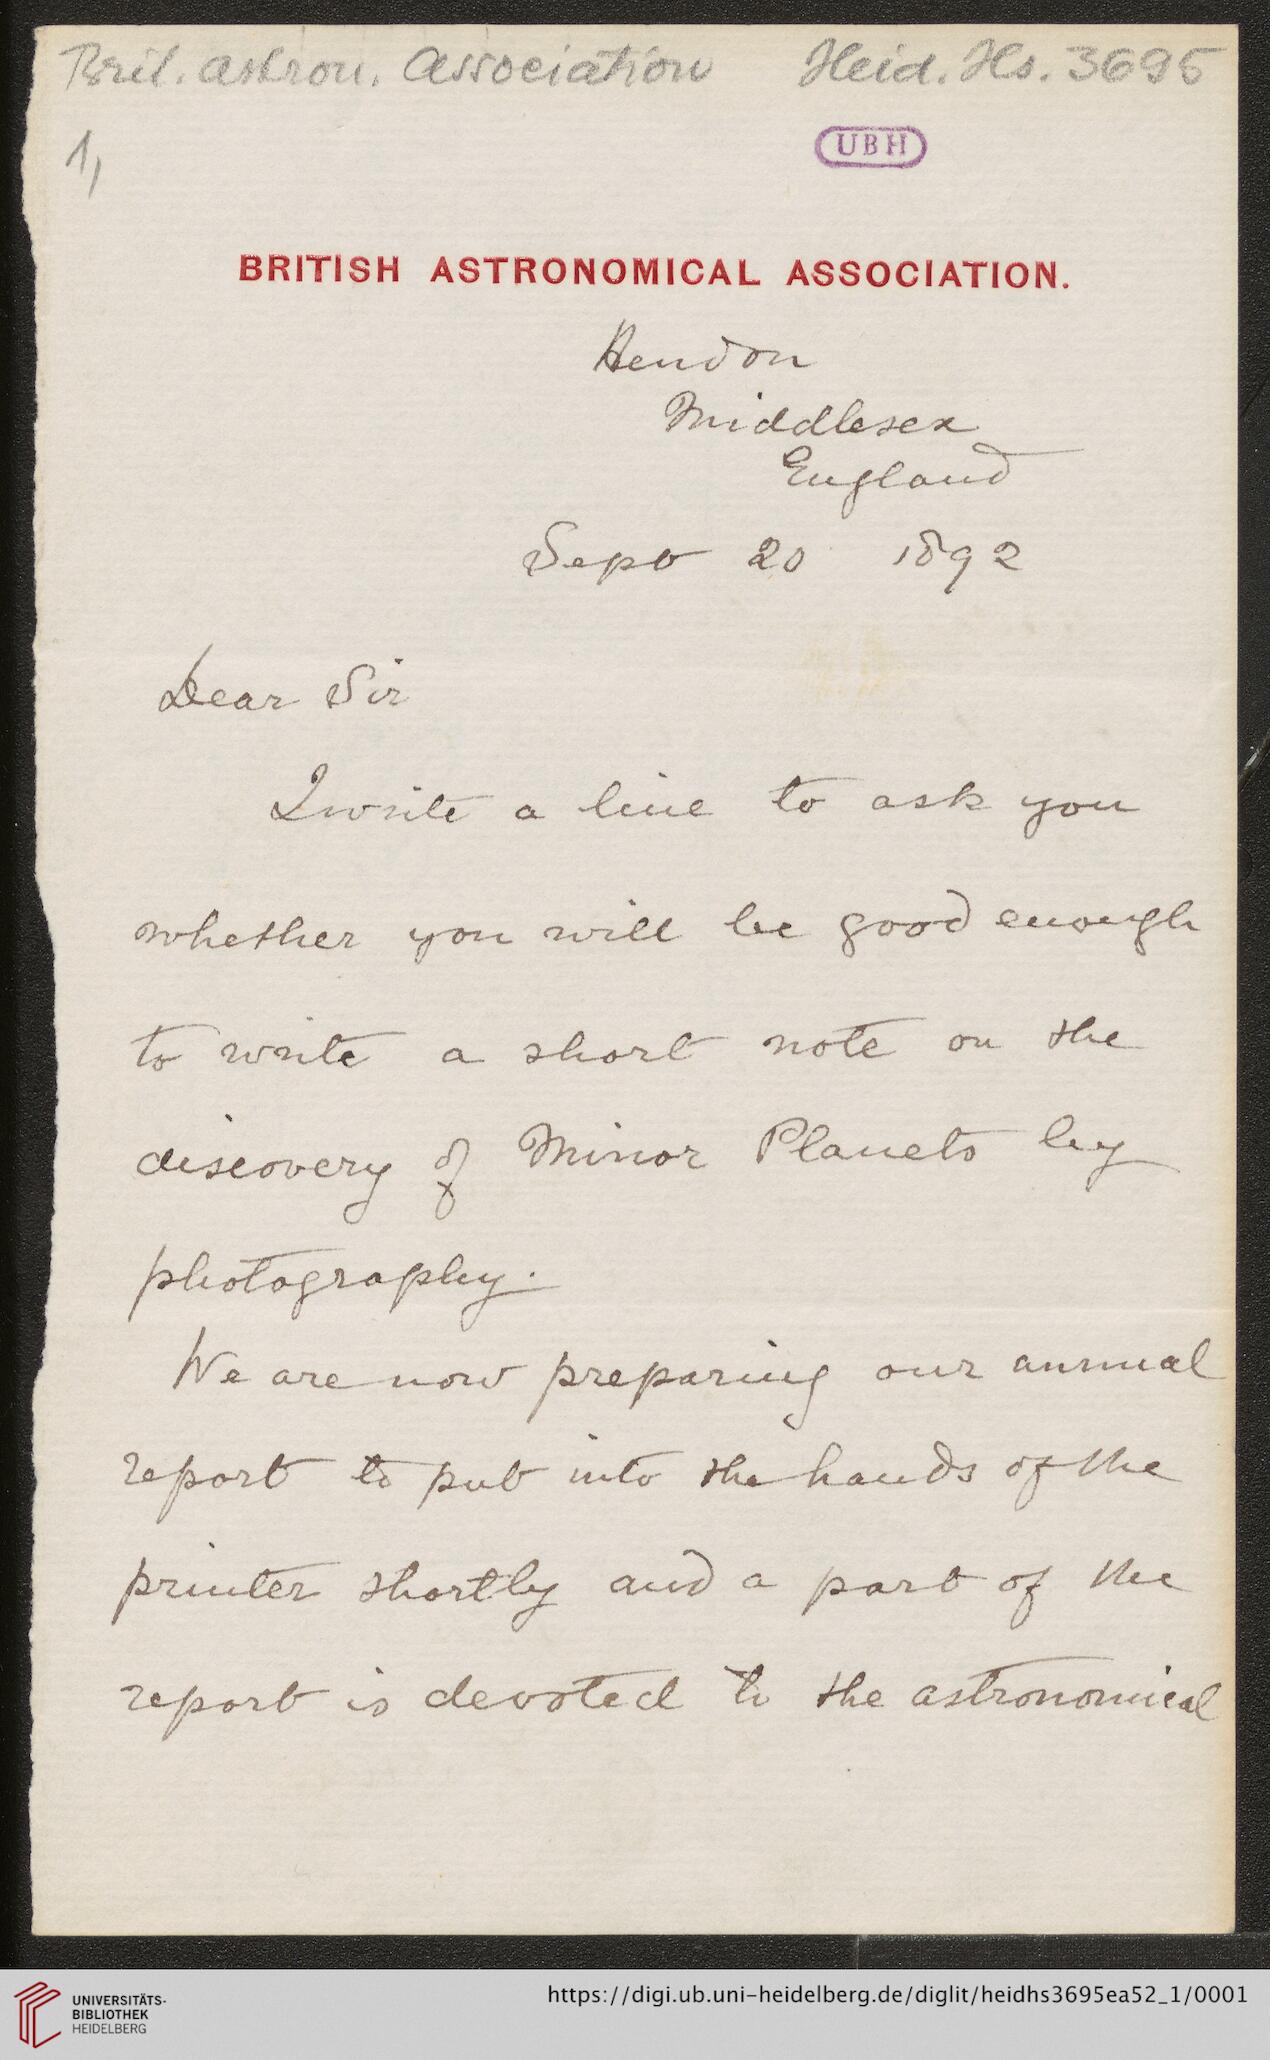 Brit. astron. Association Heid. Hs. 3695
1,
UBH
BRITISH ASTRONOMICAL ASSOCIATION.
Hendon
Middlesex
England
Sept 20 1892
Dear Sir
I write a line to ask you
whether you will be good enough
to write a short note on the
discovery of Minor Planets by
photography.
We are now preparing our annual
report to put into the hands of the
printer shortly and a part of the
report is devoted to the astronomical
UNIVERSITÄTS-
BIBLIOTHEK
HEIDELBERG
https://digi.ub.uni-heidelberg.de/diglit/heidhs3695ea52_1/0001